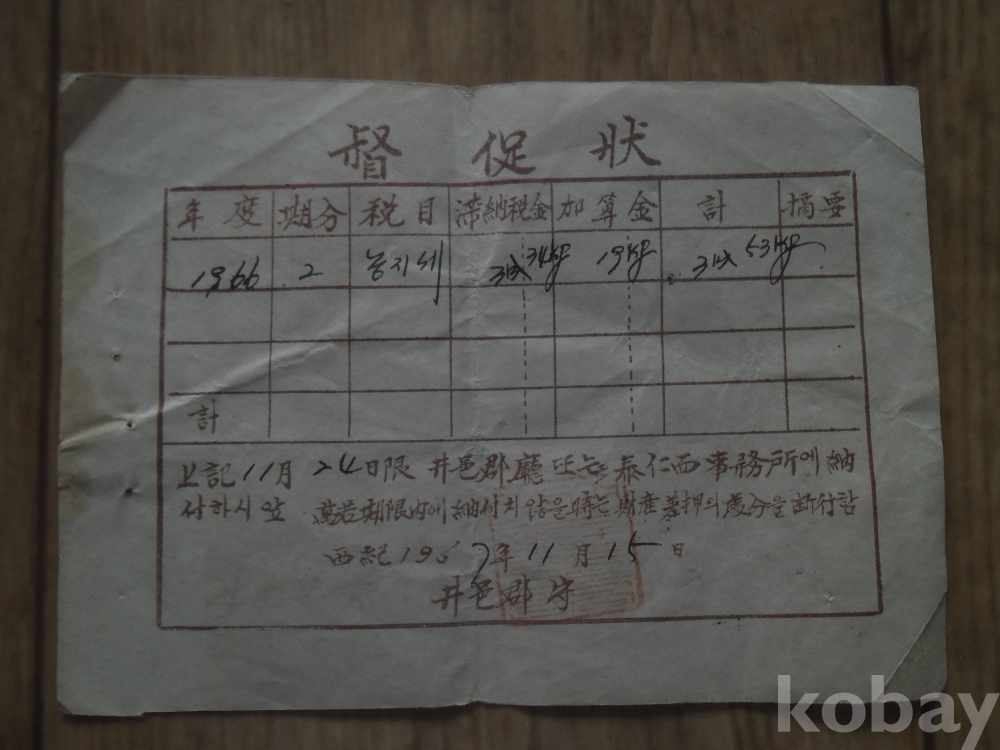 督促狀
年度 期分 税目 滞納税金 加算金 計 摘要
1966 2 농지세 34kg 19kg 53kg
計
上記 11月 24日限 井邑郡廳 또는 泰仁面事務所에 納
付하시압 萬若期限内에 納付치 않을 時는 財産差押의 處分을 断行함
西紀 1967年 11月 15日
井邑郡守
kobay